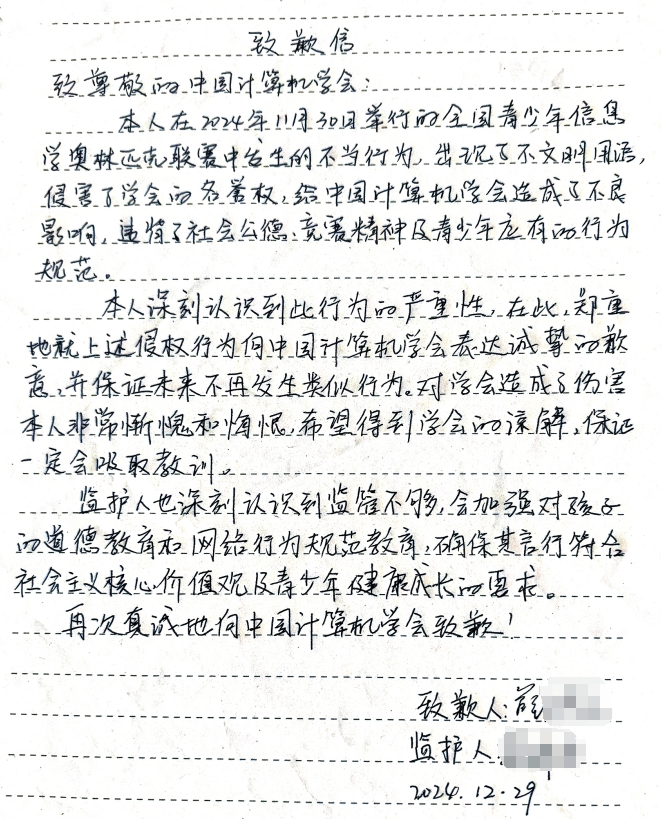 致歉信
致尊敬的中国计算机学会：
本人在2024年11月30日举行的全国青少年信息
学奥林匹克联赛中发生的不当行为，出现了不文明用语，
侵害了学会的名誉权，给中国计算机学会造成了不良
影响，违背了社会公德、竞赛精神及青少年应有的行为
规范。
本人深刻认识到此行为的严重性，在此，郑重
地就上述侵权行为向中国计算机学会表达诚挚的歉
意，并保证未来不再发生类似行为。对学会造成了伤害
本人非常惭愧和悔恨，希望得到学会的谅解，保证
一定会吸取教训。
监护人也深刻认识到监管不够，会加强对孩子
的道德教育和网络行为规范教育，确保其言行符合
社会主义核心价值观及青少年健康成长的要求。
再次真诚地向中国计算机学会致歉！
致歉人：
监护人：
2024.12.29